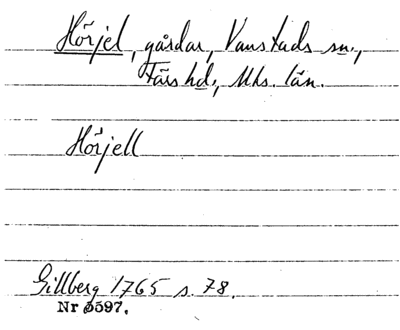 Hörjel, gårdar, Vanstads sn.,
Färs hd., Mhs. län.
Hörjell
Gillberg 1765 s. 78.
Nr 5597.